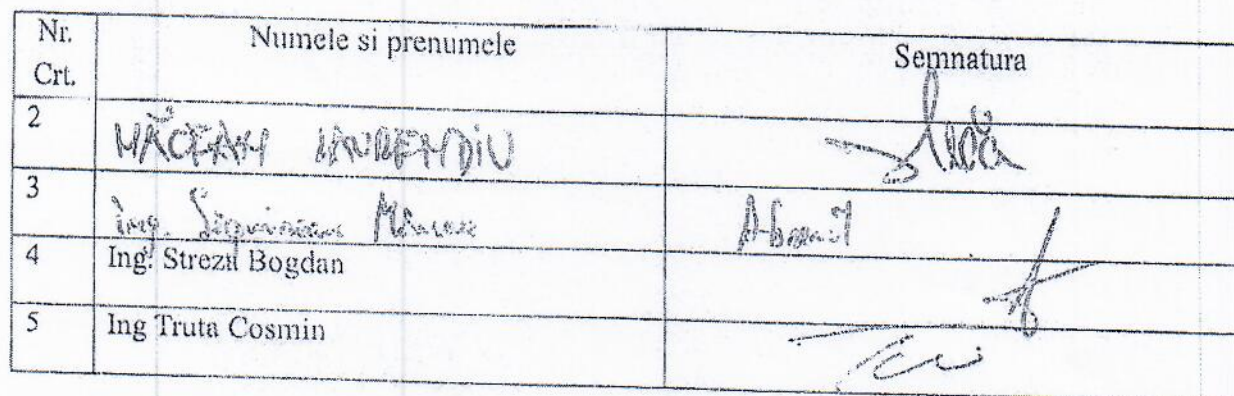 Nr. Crt. Numele si prenumele Semnatura
2 MĂCEAN LAURENȚIU
3 ing.
4 Ing. Strezu Bogdan
5 Ing Truta Cosmin